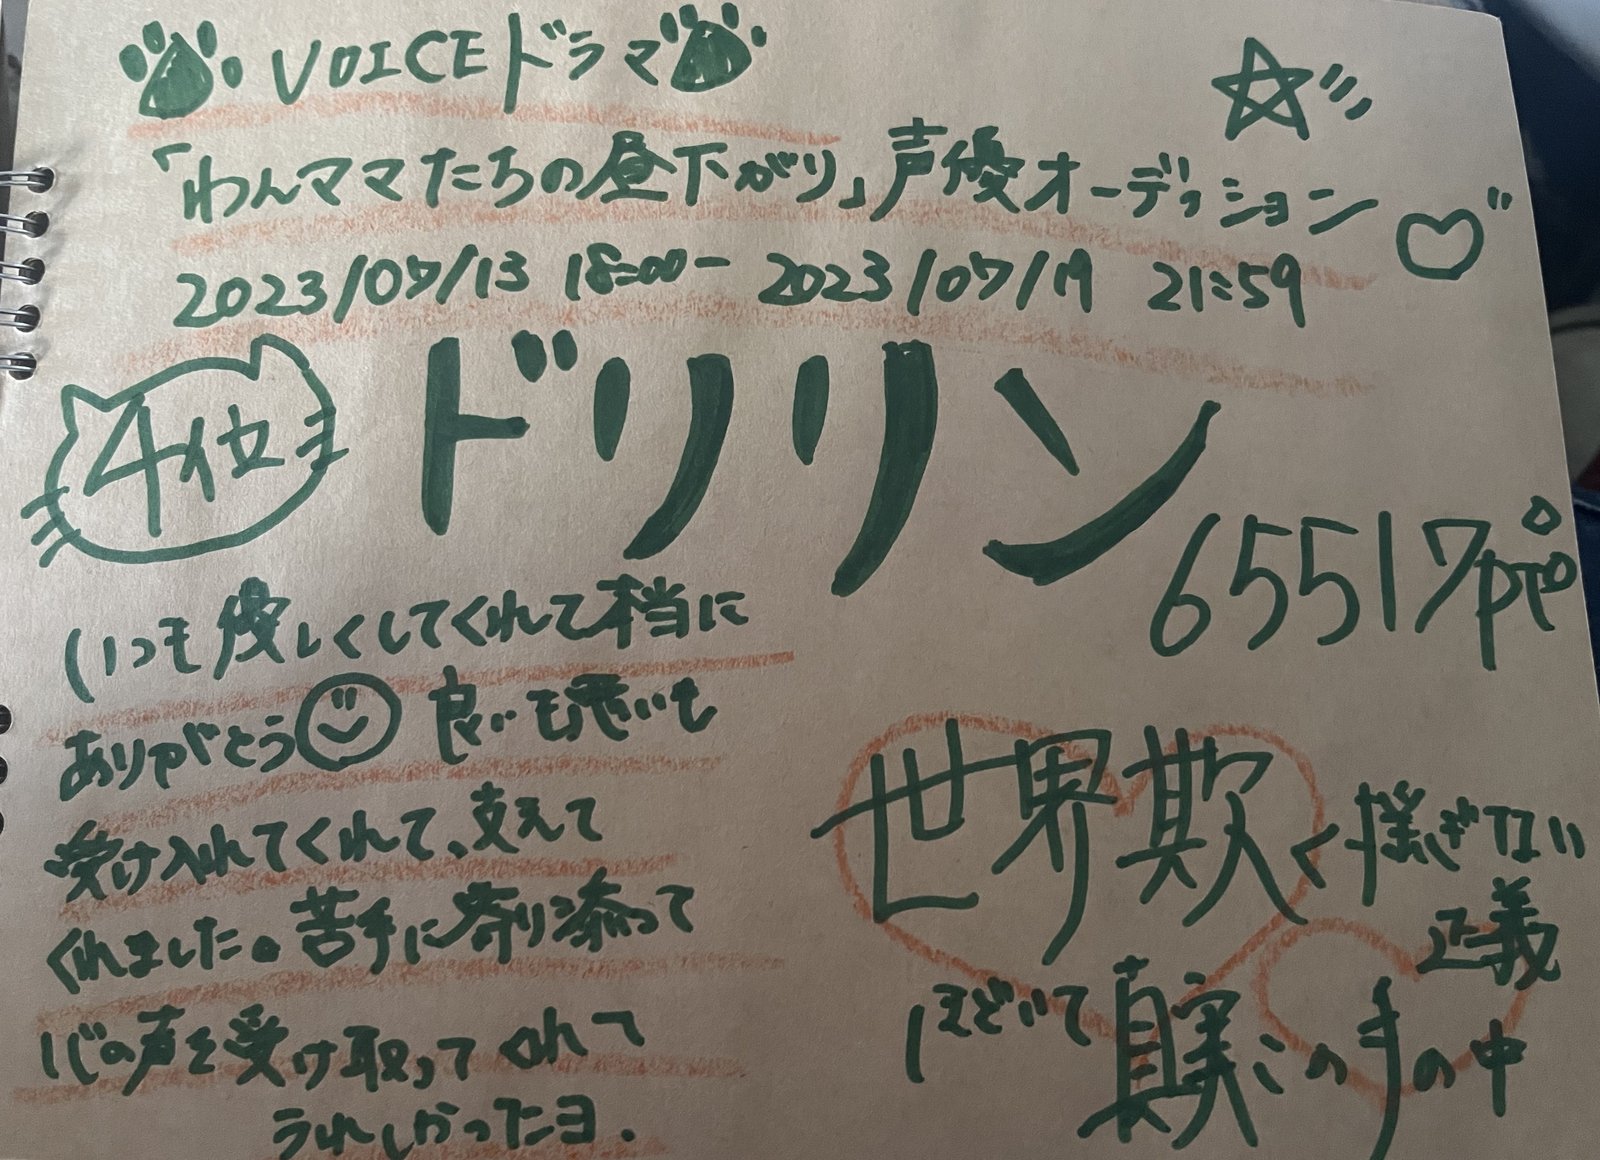 VOICEドラマ
「わんママたちの昼下がり」声優オーディション
2023/07/13 18:00- 2023/07/19 21:59
4位
ドリリン
65517pt
いつも優しくしてくれて本当に
ありがとう 良いも悪いも
受け入れてくれて、支えて
くれました。苦手に寄り添って
心の声を受け取ってくれて
うれしかったヨ.
世界欺く揺ぎない
正義
ほどいて真実この手の中